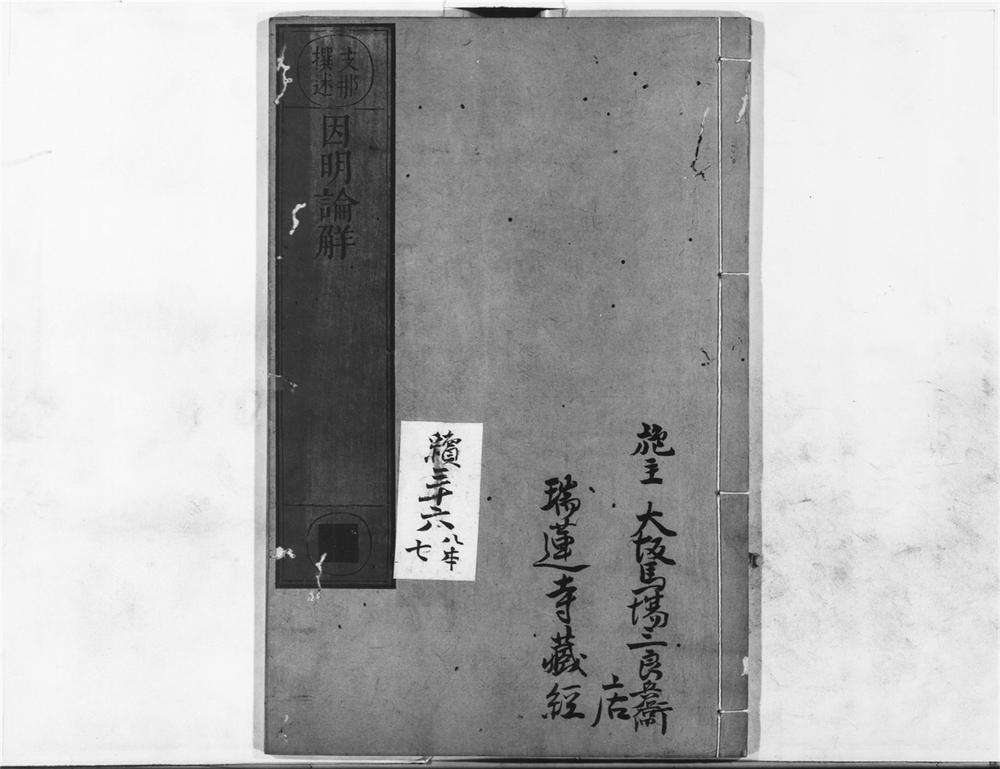 施主 大坂馬場三良兵衛
店
瑞蓮寺藏經
續三十六
八本
七
支那
撰述
因明論解